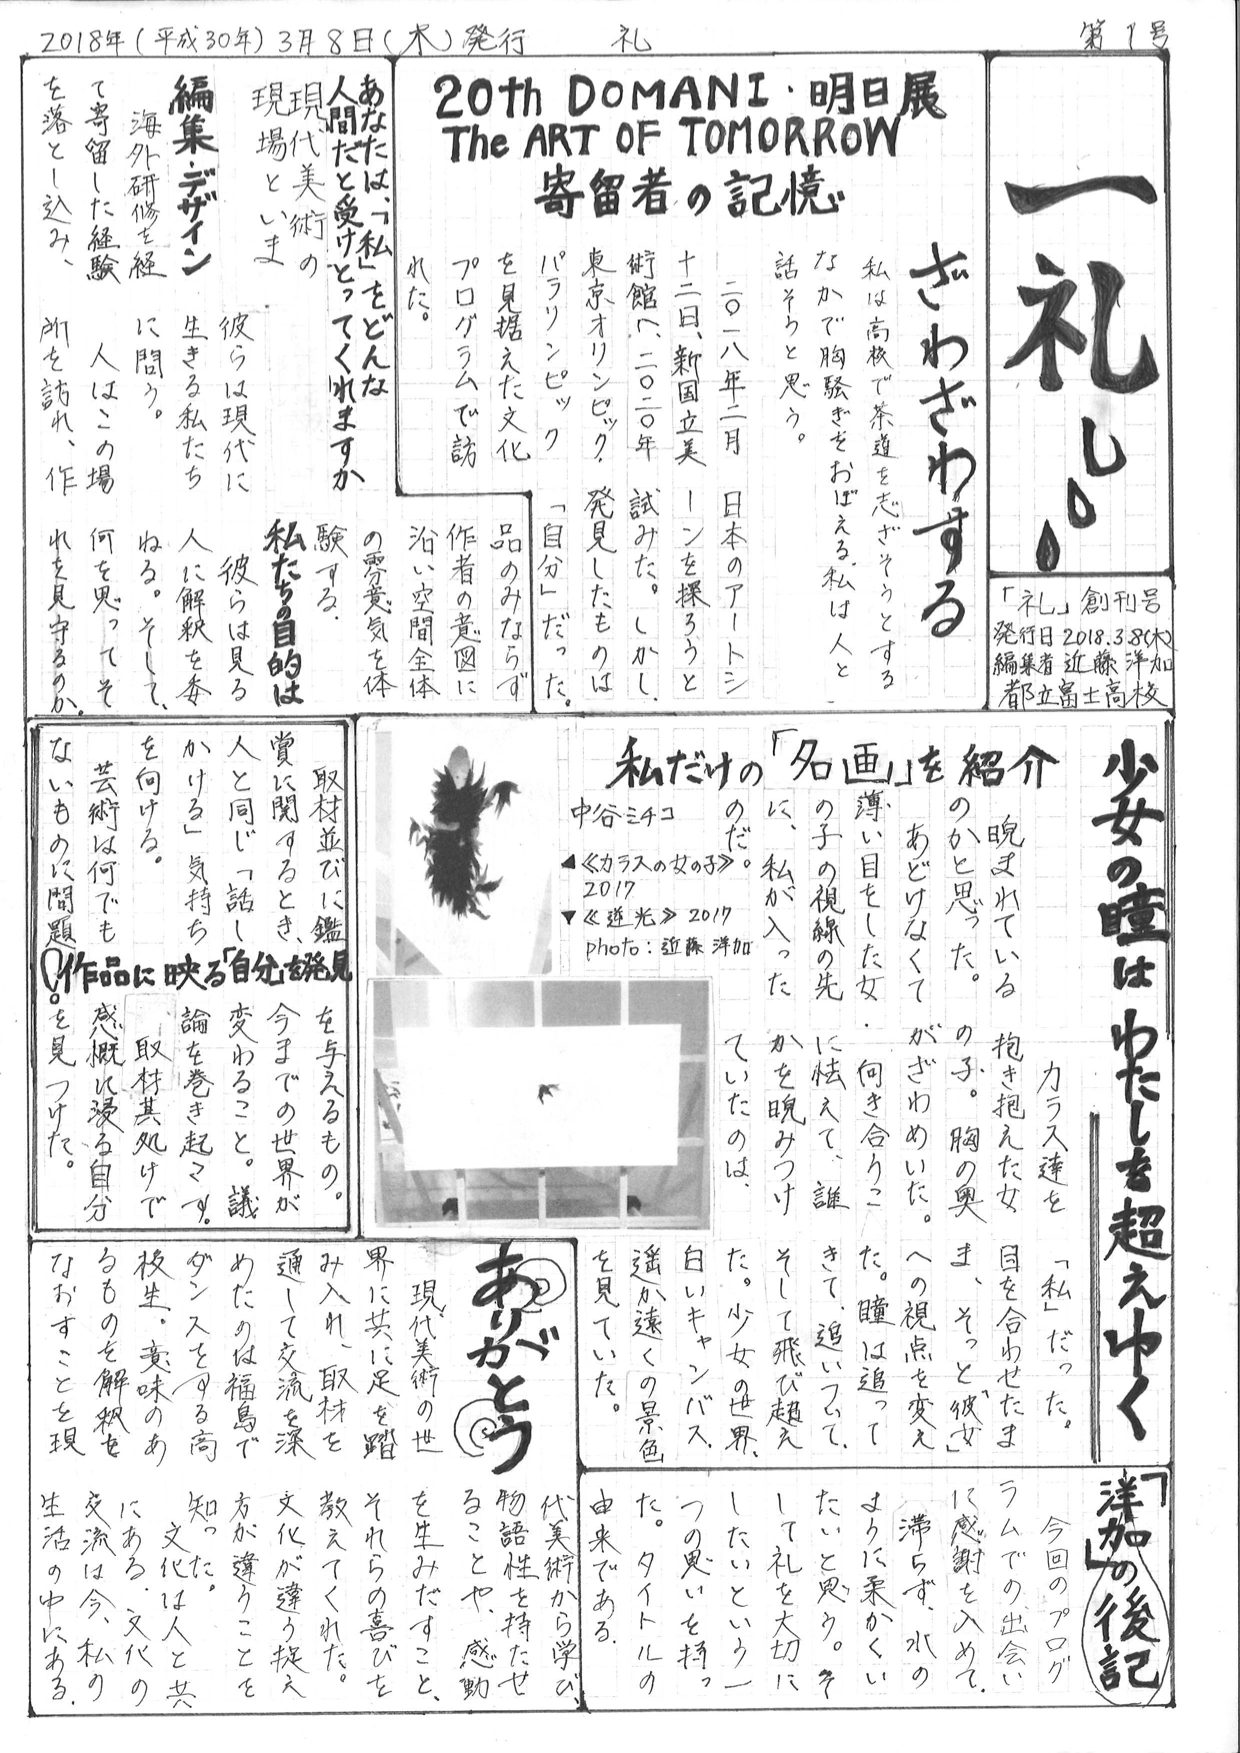 2018年(平成30年)3月8日(木)発行 礼 第1号
一礼
「礼」創刊号
発行日 2018.3.8(木)
編集者 近藤洋加
都立富士高校
20th DOMANI・明日展
The ART OF TOMORROW
寄留者の記憶
ざわざわする
私は高校で茶道を志ざそうとする
なかで胸騒ぎをおぼえる。私は人と
話そうと思う。
二〇一八年二月
十二日、新国立美
術館へ、二〇二〇年
東京オリンピック・
パラリンピック
を見据えた文化
プログラムで訪
れた。
日本のアートシ
ーンを探ろうと
試みた。しかし、
発見したものは
「自分」だった。
あなたは、「私」をどんな
人間だと受けとってくれますか
現代美術の
現場といま
編集・デザイン
海外研修を経
て寄留した経験
を落とし込み、
彼らは現代に
生きる私たち
に問う。
人はこの場
所を訪れ、作
品のみならず
作者の意図に
沿い空間全体
の雰意気を体
験する.
私たちの目的は
彼らは見る
人に解釈を委
ねる。そして、
何を思ってそ
れを見守るのか。
少女の瞳はわたしを超えゆく
私だけの「名画」を紹介
睨まれている
のかと思った。
あどけなくて
薄い目をした女
の子の視線の先
に、私が入った
のだ。
カラス達を
抱き抱えた女
の子。胸の奥
がざわめいた。
何き合りこ
に怯えて、誰
かを睨みつけ
ていたのは、
「私」だった。
目を合わせたま
ま、そっと「彼女」
への視点を変え
た。瞳は追って
きて、追いついて、
そして飛び超え
た。少女の世界、
白いキャンバス、
遥か遠くの景色
を見ていた。
中谷ミチコ
▲《カラスの女の子》
2017
▼《逆光》2017
photo:近藤洋加
取材並びに鑑
賞に関するとき、
人と同じ「話し
かける」気持ち
を向ける。
芸術は何でも
ないものに問題
作品に映る「自分」を発見
を与えるもの。
今までの世界が
変わること。議
論を巻き起こす。
取材其処けで
感慨に浸る自分
を見つけた。
ありがとう
現代美術の世
界に共に足を踏
み入れ、取材を
通して交流を深
めたのは福島で
ダンスをする高
校生。意味のあ
るものを解釈を
なおすことを現
代美術から学び、
物語性を持たせ
ることや、感動
を生みだすこと、
それらの喜びを
教えてくれた。
文化が違う捉え
方が違うことを
知った。
文化は人と共
にある.文化の
交流は今、私の
生活の中にある.
「洋加」の後記
今回のプログ
ラムでの出会い
に感謝を入めて.
滞らず、水の
ように柔かくい
たいと思う。そ
して礼を大切に
したいという一
つの思いを持っ
た。タイトルの
由来である.